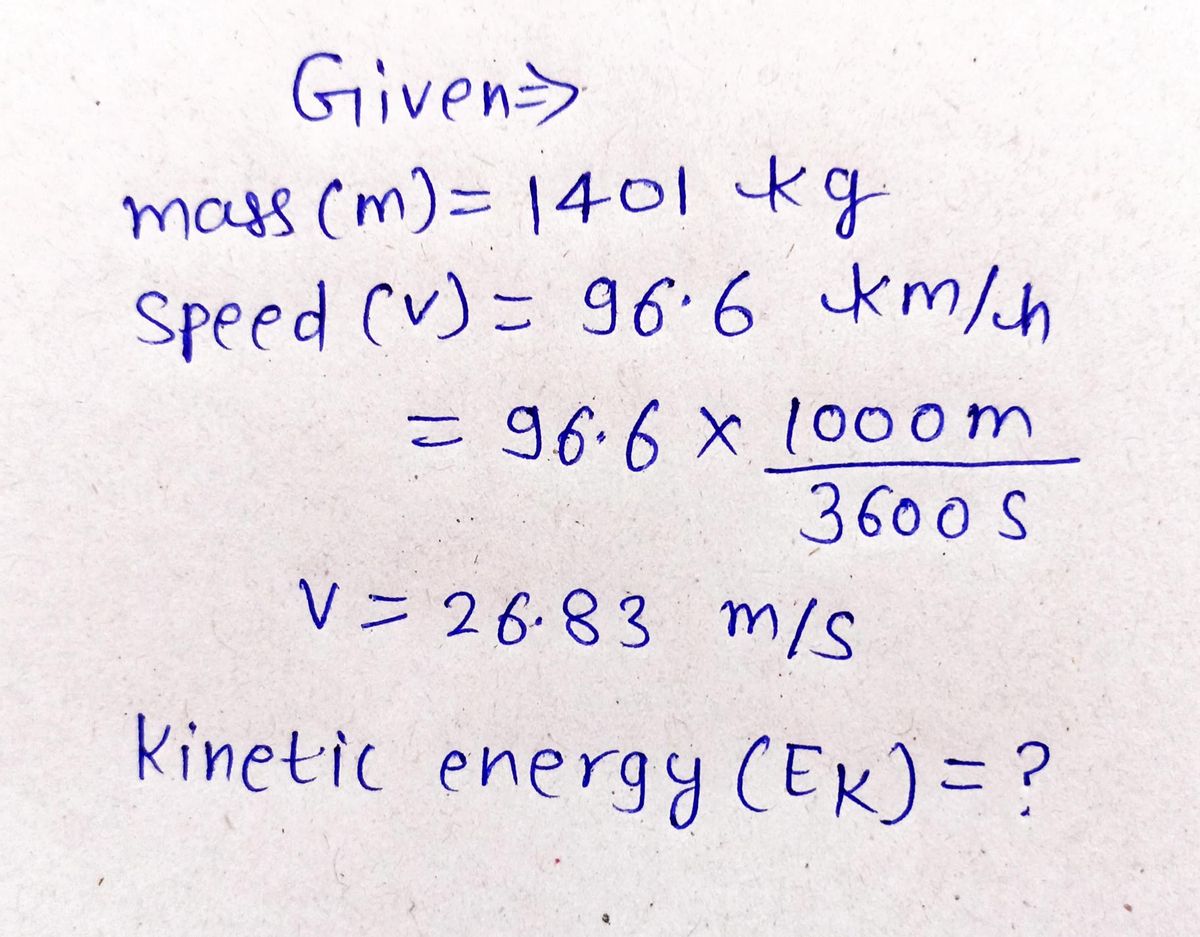 Given⇒
mass (m) = 1401 kg
Speed (v) = 96.6 km/h
= 96.6 × 1000 m
3600 S
V = 26.83 m/s
Kinetic energy (EK) = ?